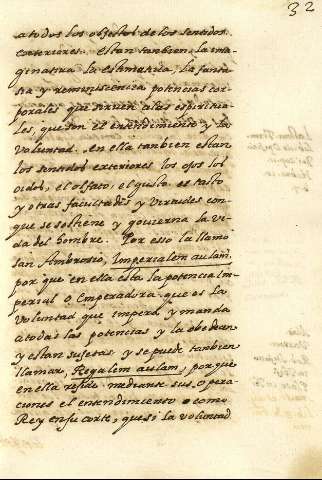 32
a todos los objectos de los sentidos
exteriores. estan tanbien, la ima
ginatiua la estimatiua, la fanta
sia y reminiscencia potencias cor
porales que siruen alas espiritua
les, que son el entendimiento y la
voluntad. en ella tanbien estan
los sentidos exteriores los ojos los
oidos, el olfato, el gusto es tacto
y otras facultades y virtudes con
que se sostiene y gouierna la vi
da del hombre. Por esso la llamo
san Ambrosio, Imperialem aulam,
por que en ella esta la potencia Im
perial o Emperadora que es la
voluntad que impera y manda
a todas las potencias y la obedecen
y estan sujetas y se puede tanbien
llamar, Regalem aulam, por que
en ella reside mediante sus opera
ciones el entendimiento como
Rey en su corte, que si la voluntad